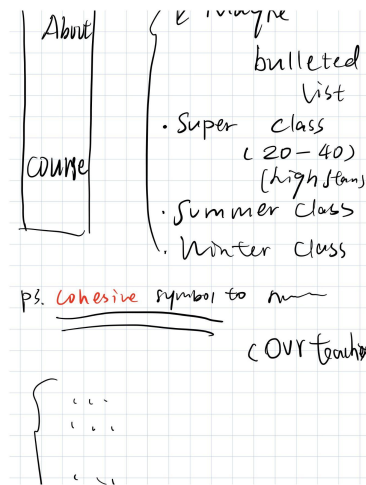 About
bulleted
list
· Super class
(20-40)
(high
course
· Summer class
· Winter class
ps. cohesive symbol to
(our